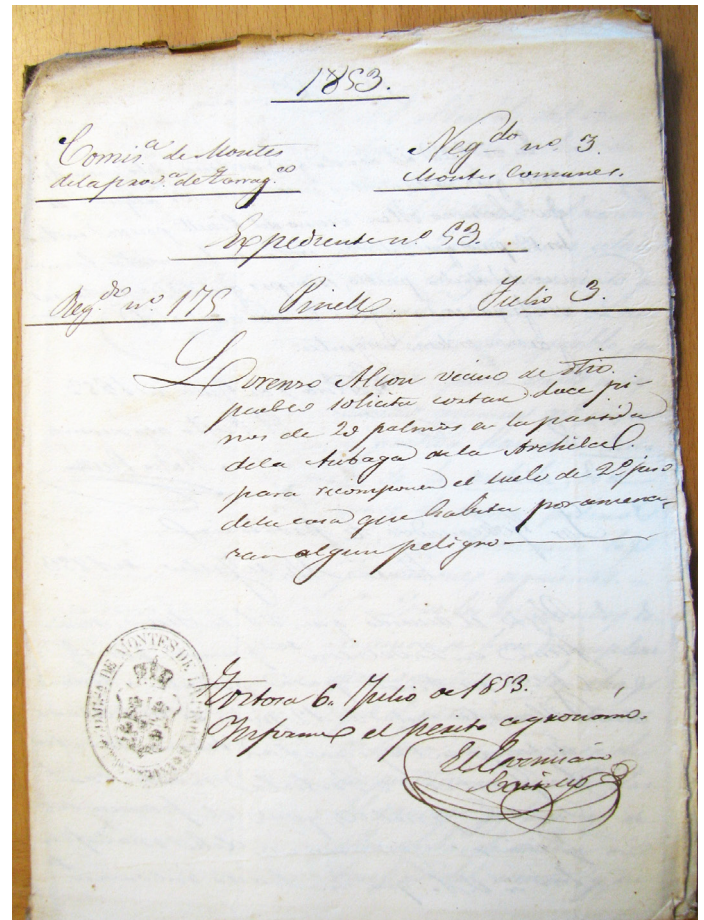 1853.
Comis.ª de Montes
de la prov.ª de Tarrag.ª
Neg.do nº 3.
Montes Comunes.
Expediente nº 53.
Reg.do nº 175
Pinell.
Julio 3.
Lorenzo Alcon vecino de dho.
pueblo solicita cortar doce pi-
nos de 20 palmos en la partida
dela Aubaga de la
para recomponer el suelo de 2º piso
dela casa que habita por amena-
zar algun peligro
COMISARIA DE MONTES DE LA PROV.
Tortosa 6. Julio de 1853.
Informe el perito agronomo.
El Comisario